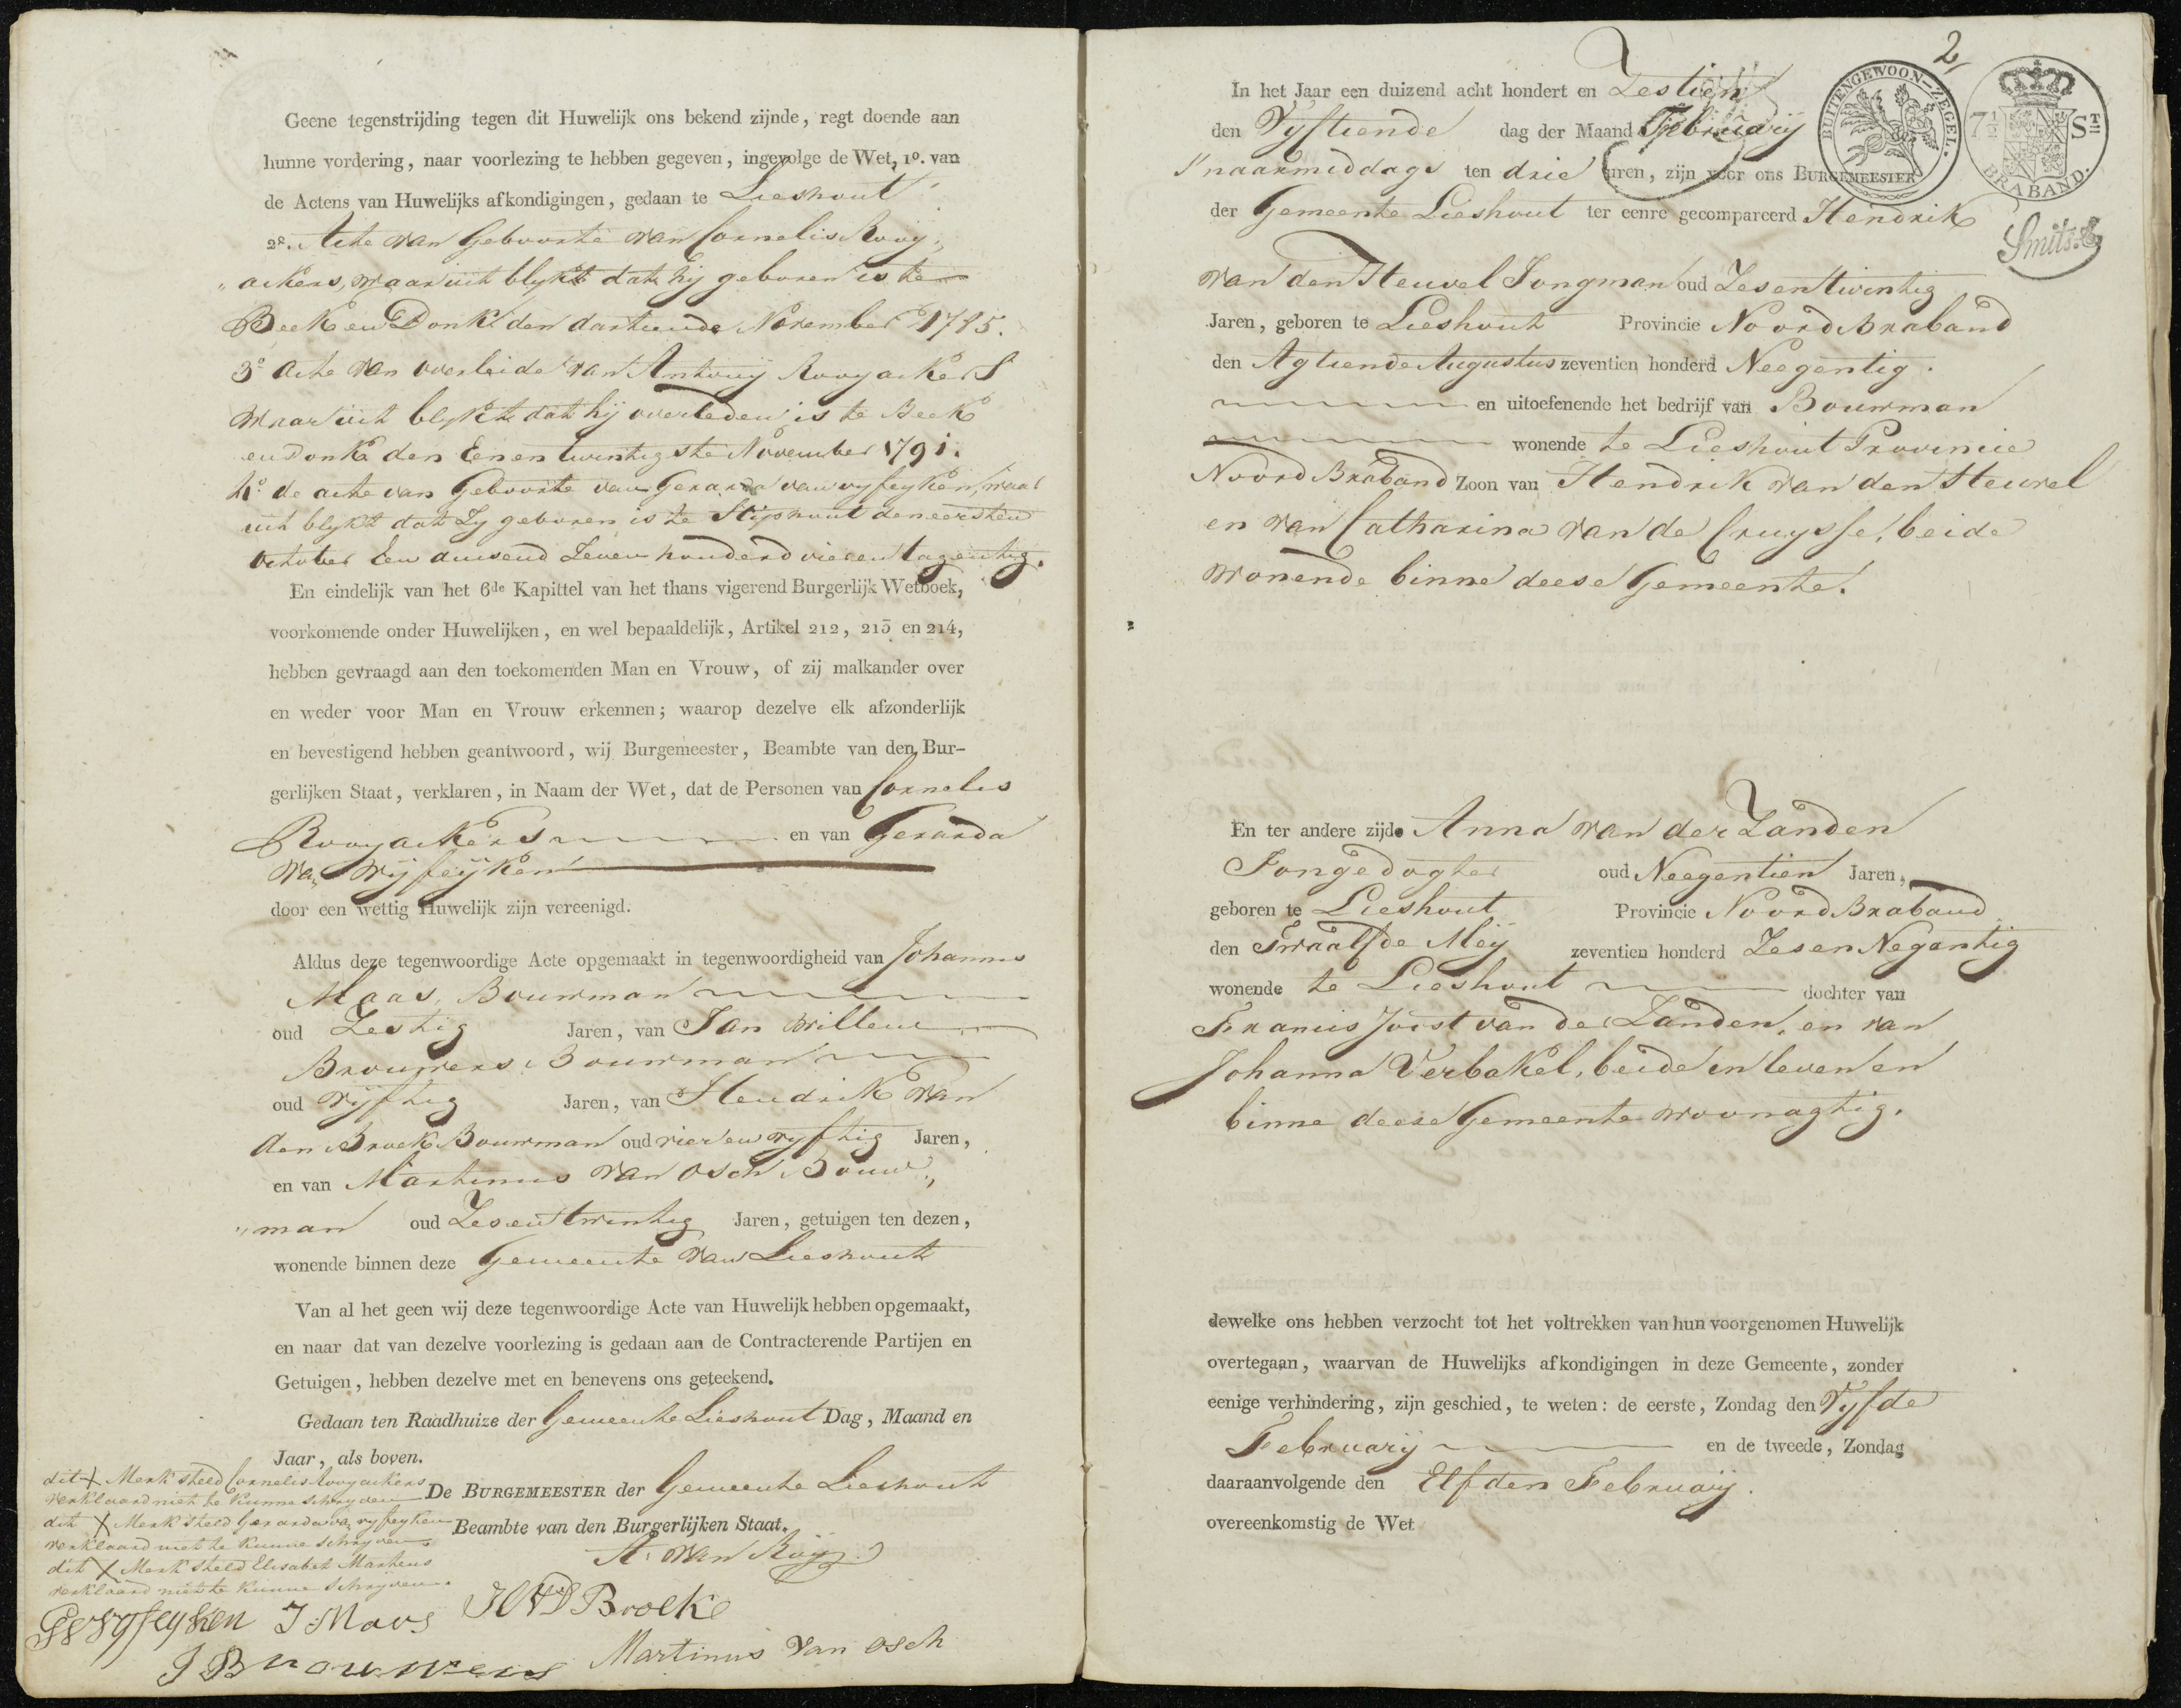 Geene tegenstrijding tegen dit Huwelijk ons bekend zijnde, regt doende aan
hunne vordering, naar voorlezing te hebben gegeven, ingevolge de Wet, 1º. van
de Actens van Huwelijks afkondigingen, gedaan te Lieshout
2º. Acte van Geboorte van Cornelis Rooy„
„ackers, waar uit blykt dat hij geboren is te
Beek en Donk den dartiende November 1785.
3º Acte van overleide van Antonij Rooyackers
waar uit blykt dat hij overleden is te Beek
en Donk den Eenentwintigste November 1791.
4º. de acte van Geboorte van Gerarda van vyfeyken, waar
uit blykt dat Zy geboren is te Stiphout den eersten
October Een duisend Zeven honderd vieren tagentig.
En eindelijk van het 6de Kapittel van het thans vigerend Burgerlijk Wetboek,
voorkomende onder Huwelijken, en wel bepaaldelijk, Artikel 212, 213 en 214,
hebben gevraagd aan den toekomenden Man en Vrouw, of zij malkander over
en weder voor Man en Vrouw erkennen; waarop dezelve elk afzonderlijk
en bevestigend hebben geantwoord, wij Burgemeester, Beambte van den Bur-
gerlijken Staat, verklaren, in Naam der Wet, dat de Personen van Cornelis
Rooyackers en van Gerarda
van Vijfeijken
door een wettig Huwelijk zijn vereenigd.
Aldus deze tegenwoordige Acte opgemaakt in tegenwoordigheid van Johannes
Maas, Bouwman
oud Zestig Jaren, van Jan Willem
Brouwers Bouwman
oud vijftig Jaren, van Hendrik van
den Broek Bouwman oud vier en vyftig Jaren,
en van Martinus van Osch Bouw„
„man oud Zesentwintig Jaren, getuigen ten dezen,
wonende binnen deze Gemeente van Lieshout
Van al het geen wij deze tegenwoordige Acte van Huwelijk hebben opgemaakt,
en naar dat van dezelve voorlezing is gedaan aan de Contracterende Partijen en
Getuigen, hebben dezelve met en benevens ons geteekend.
Gedaan ten Raadhuize der Gemeente Lieshout Dag, Maand en
Jaar, als boven.
dit X Merk steld Cornelis Rooyackers
verklaard niet te kunne schryven
De BURGEMEESTER der Gemeente Lieshout
dit X Merk steld Gerarda van vyfeyken
Beambte van den Burgerlijken Staat.
verklaard niet te kunne schryven
A. van Rooij
dit X Merk steld Elisabet Martens
verklaard niet te kunne schryven.
vyfeyken J Maos HVD Broek
J Brouwers Martinus van osch
2
BUITENGEWOON-ZEGEL.
7½ Sᵗⁿ
BRABAND.
Smits
In het Jaar een duizend acht hondert en Zestien
den Vyftiende dag der Maand Februarij
s'naarmiddags ten drie uren, zijn voor ons BURGEMEESTER
der Gemeente Lieshout ter eenre gecompareerd Hendrik
van den Heuvel Jongman oud Zesentwintig
Jaren, geboren te Lieshout Provincie Noord Braband
den Agtiende Augustus zeventien honderd Neegentig.
en uitoefenende het bedrijf van Bouwman
wonende te Lieshout Provincie
Noord Braband Zoon van Hendrik van den Heuvel
en van Catharina van de Cruysse, beide
wonende binne deese Gemeente.
En ter andere zijde Anna van der Zanden
Jongedogter oud Neegentien Jaren,
geboren te Lieshout Provincie Noord Braband
den Twaalfde Meij zeventien honderd Zesen Negentig
wonende te Lieshout dochter van
Francis Joost van der Zanden, en van
Johanna Verbakel, beide in leven en
binne deese Gemeente woonagtig.
dewelke ons hebben verzocht tot het voltrekken van hun voorgenomen Huwelijk
overtegaan, waarvan de Huwelijks afkondigingen in deze Gemeente, zonder
eenige verhindering, zijn geschied, te weten: de eerste, Zondag den Vyfde
Februarij en de tweede, Zondag
daaraanvolgende den Elfden Februarij.
overeenkomstig de Wet